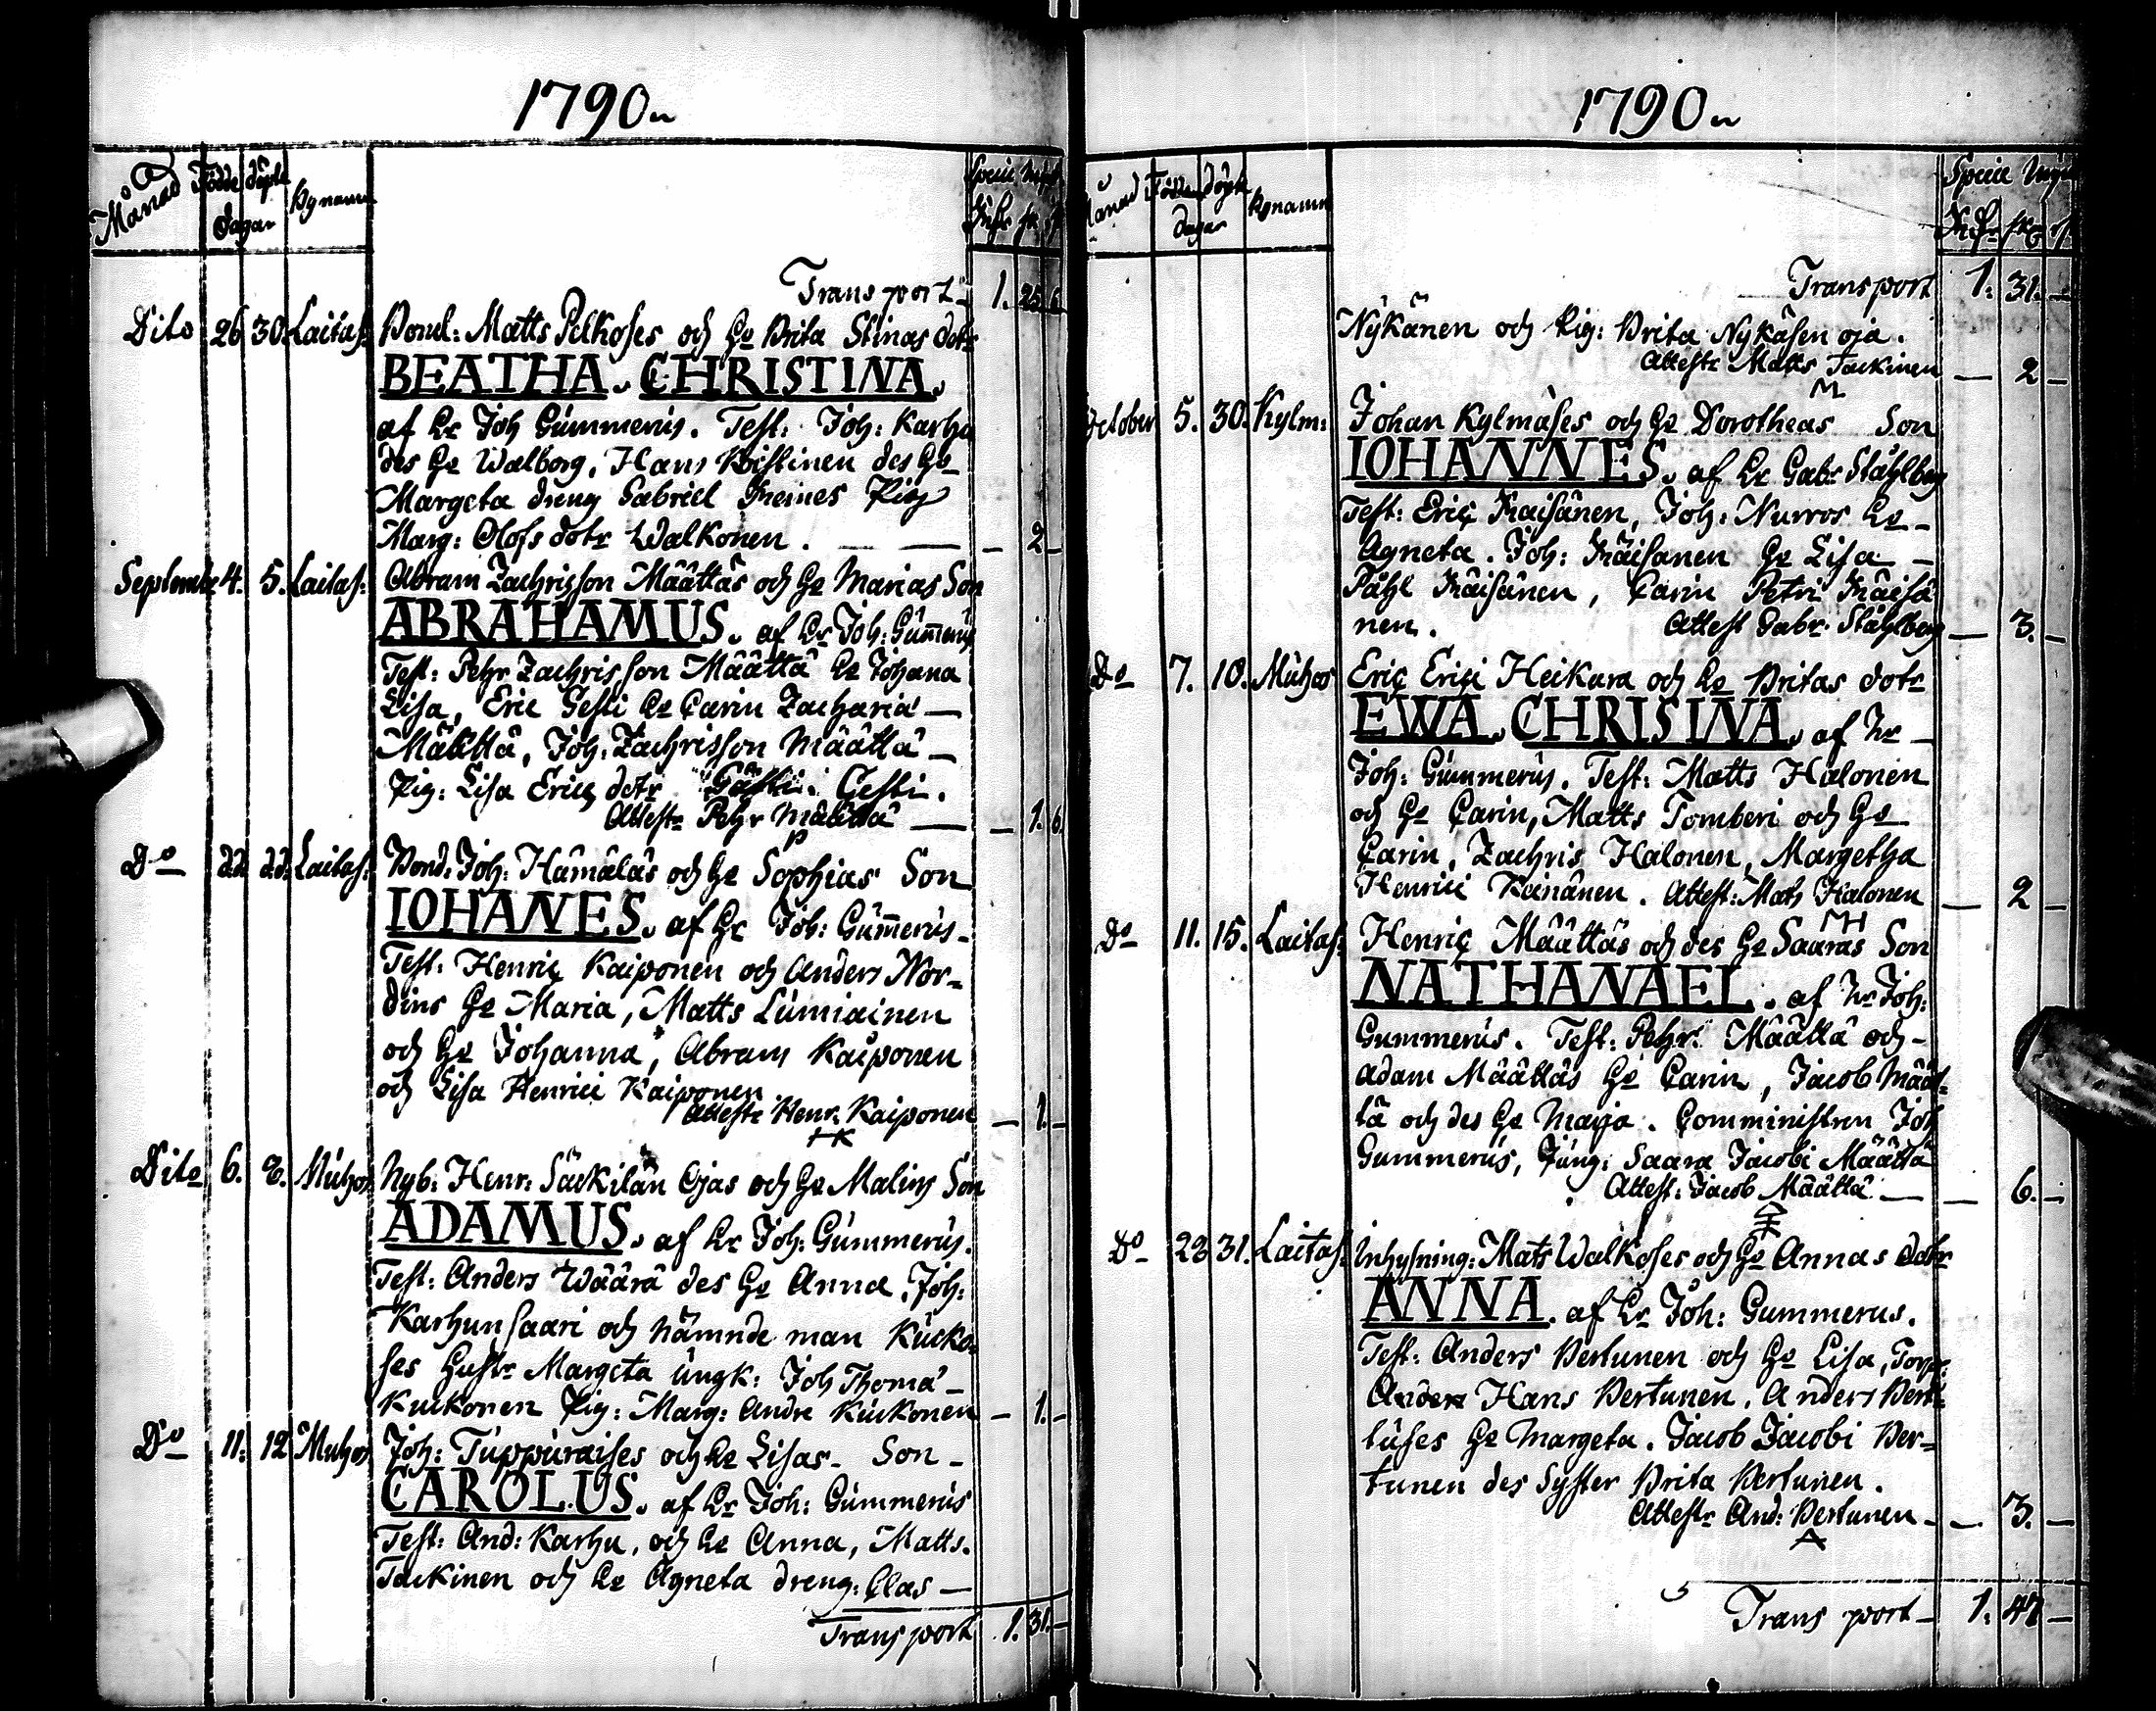 1790.
Månad Födde döpte Bynamn
dagar
Specie Mynt
Transport 1. 25. 6.
Dito 26 30. Laitas: Bond: Matts Pelkoses och Hu Brita Stinas dotr
BEATHA. CHRISTINA.
af Hr Joh Gummerus. Test: Joh: Karhu
des Hu Walborg. Hans Kristinen des Hu
Margeta dreng Gabriel Pig
Marg: Olofs dotr Walkonen. — 2 —
Septembr 4. 5. Laitas: Abram Zachrisson Määttäs och Hu Marias Son
ABRAHAMUS. af Hr Joh: Gummerus
Test: Pehr Zachrisson Määttä Hu Johana
Lisa, Eric Gesti Hu Carin Zacharia —
Määttä, Joh: Zachrisson Määttä —
Pig: Lisa Erics dotr Gesti.
Attestr Pehr Määttä — 1. 6.
P
Do 22. 22. Laitas: Bond: Joh: Hämäläs och Hu Sophias Son
IOHANES. af Hr Joh: Gummerus
Test: Henric Kaiponen och Anders Nor-
dins Hu Maria, Matts Lumiainen
och Hu Johanna, Abram Kaiponen
och Lisa Henrici Kaiponen
Attestr Henr. Kaiponen — 1. —
HK
Dito 6. 8. Muhos Nyb: Henr: Säckilän Ojas och Hu Malins Son
ADAMUS. af Hr Joh: Gummerus.
Test: Anders Wäärä des Hu Anna, Joh:
Karhunsaari och Nämnde man Kucko-
ses Hustr Margeta ungk: Joh Thomä —
Kuckonen Pig: Marg: Andr Kuckonen — 1. —
Do 11. 12 Muhos Joh: Tuppuraises och Hu Lisas Son —
CAROLUS. af Hr Joh: Gummerus
Test: And: Karhu, och Hu Anna, Matts.
Tackinen och Hu Agneta dreng: Clas —
Transport 1. 31. —
1790.
Månad Födde döpte Bynamn
dagar
Specie Mynt
Transport 1. 31. —
Nykänen och Pig: Brita Nykäsen oja.
Attestr Matts Tackinen — 2 —
M
October 5. 30. Kylm: Johan Kylmäses och Hu Dorotheas Son
IOHANNES. af Hr Gabr Ståhlberg
Test: Eric Kaisänen, Joh: Nurros Hu —
Agneta. Joh: Kaisanen Hu Lisa —
Påhl Kaisänen, Carin Petri Kaisä
nen. Attest Gabr: Ståhlberg — 3. —
Do 7. 10. Muhos Eric Erici Heikura och Hu Britas dotr
EWA. CHRISINA. af Hr —
Joh: Gummerus. Test: Matts Halonen
och Hu Carin, Matts Tomberi och Hu
Carin, Zachris Halonen, Margetha
Henrici Keinänen. Attest: Mats Halonen — 2 —
MH
Do 11. 15. Laitas: Henric Määttäs och des Hu Saaras Son
NATHANAEL. af Hr Joh:
Gummerus. Test: Pehr Määttä och —
Adam Määttäs Hu Carin, Jacob Määt-
tä och des Hu Marja. Comministren Joh
Gummerus, Jung: Saara Jacobi Määttä
Attest: Jacob Määttä — 6. —
Do 23 31. Laitas: Inhysning: Mats Walkoses och Hu Annas dotr
ANNA. af Hr Joh: Gummerus.
Test: Anders Pertunen och Hu Lisa, Torp:
Anders Hans Pertunen. Anders Pert-
tuses Hu Margeta. Jacob Jacobi Per-
tunen des Syster Brita Pertunen.
Attestr And: Pertunen — 3. —
A
Transport — 1. 47 —